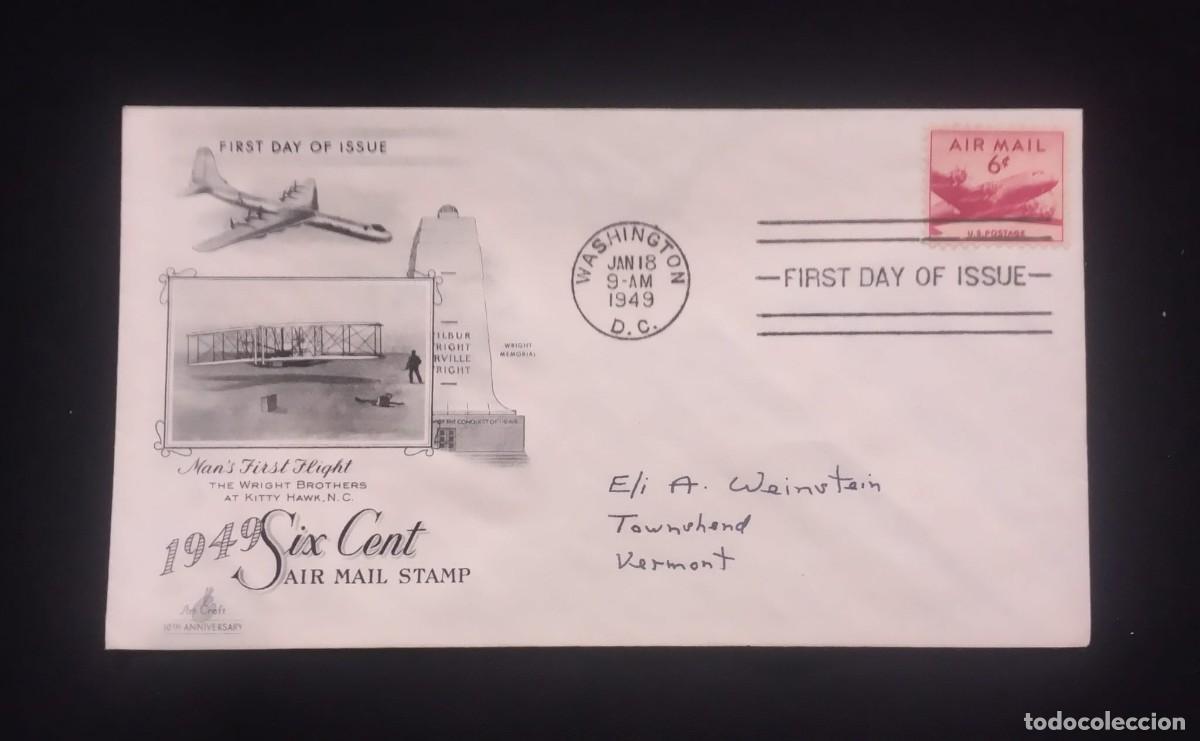 FIRST DAY OF ISSUE
WILBUR
RIGHT
RVILLE
RIGHT
WRIGHT
MEMORIAL
OF THE CONQUEST OF THE AIR
Man's First Flight
THE WRIGHT BROTHERS
AT KITTY HAWK, N.C.
1949 Six Cent
AIR MAIL STAMP
Art Craft
10TH ANNIVERSARY
WASHINGTON
JAN 18
9-AM
1949
D.C.
AIR MAIL
6¢
U.S. POSTAGE
FIRST DAY OF ISSUE
Eli A. Weinstein
Townshend
Vermont
todocoleccion